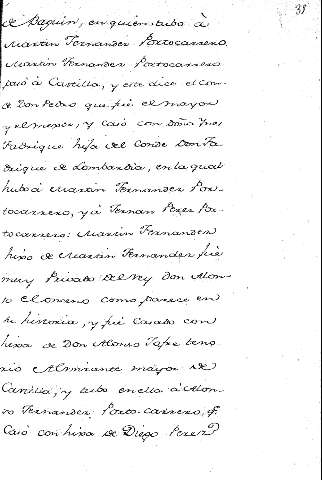 38
de Baguin, en quien tubo à
Martin Fernandez Portocarrero.
Martin Fernandez Portocarrero
pasó à Castilla, y este dice el con-
de Don Pedro que fué el mayor
y el mexor, y Casó con Doña Ynes
Fadrique hija del Conde Don Fa-
drique de Lombardia, en la qual
hubo à Martin Fernandez Por-
tocarrero, y à Fernan Perez Por-
tocarrero: Martin Fernandez
hixo de Martin Fernandez fué
muy Privado del Rey Don Alon-
so el onceno como parece en
su historia, y fué Casado con
hixa de Don Alonso Jofre teno
rio Almirante mayor de
Castilla, y tubo en ella à Alon-
so Fernandez Porto-carrero, q.
Casó con hixa de Diego Perez